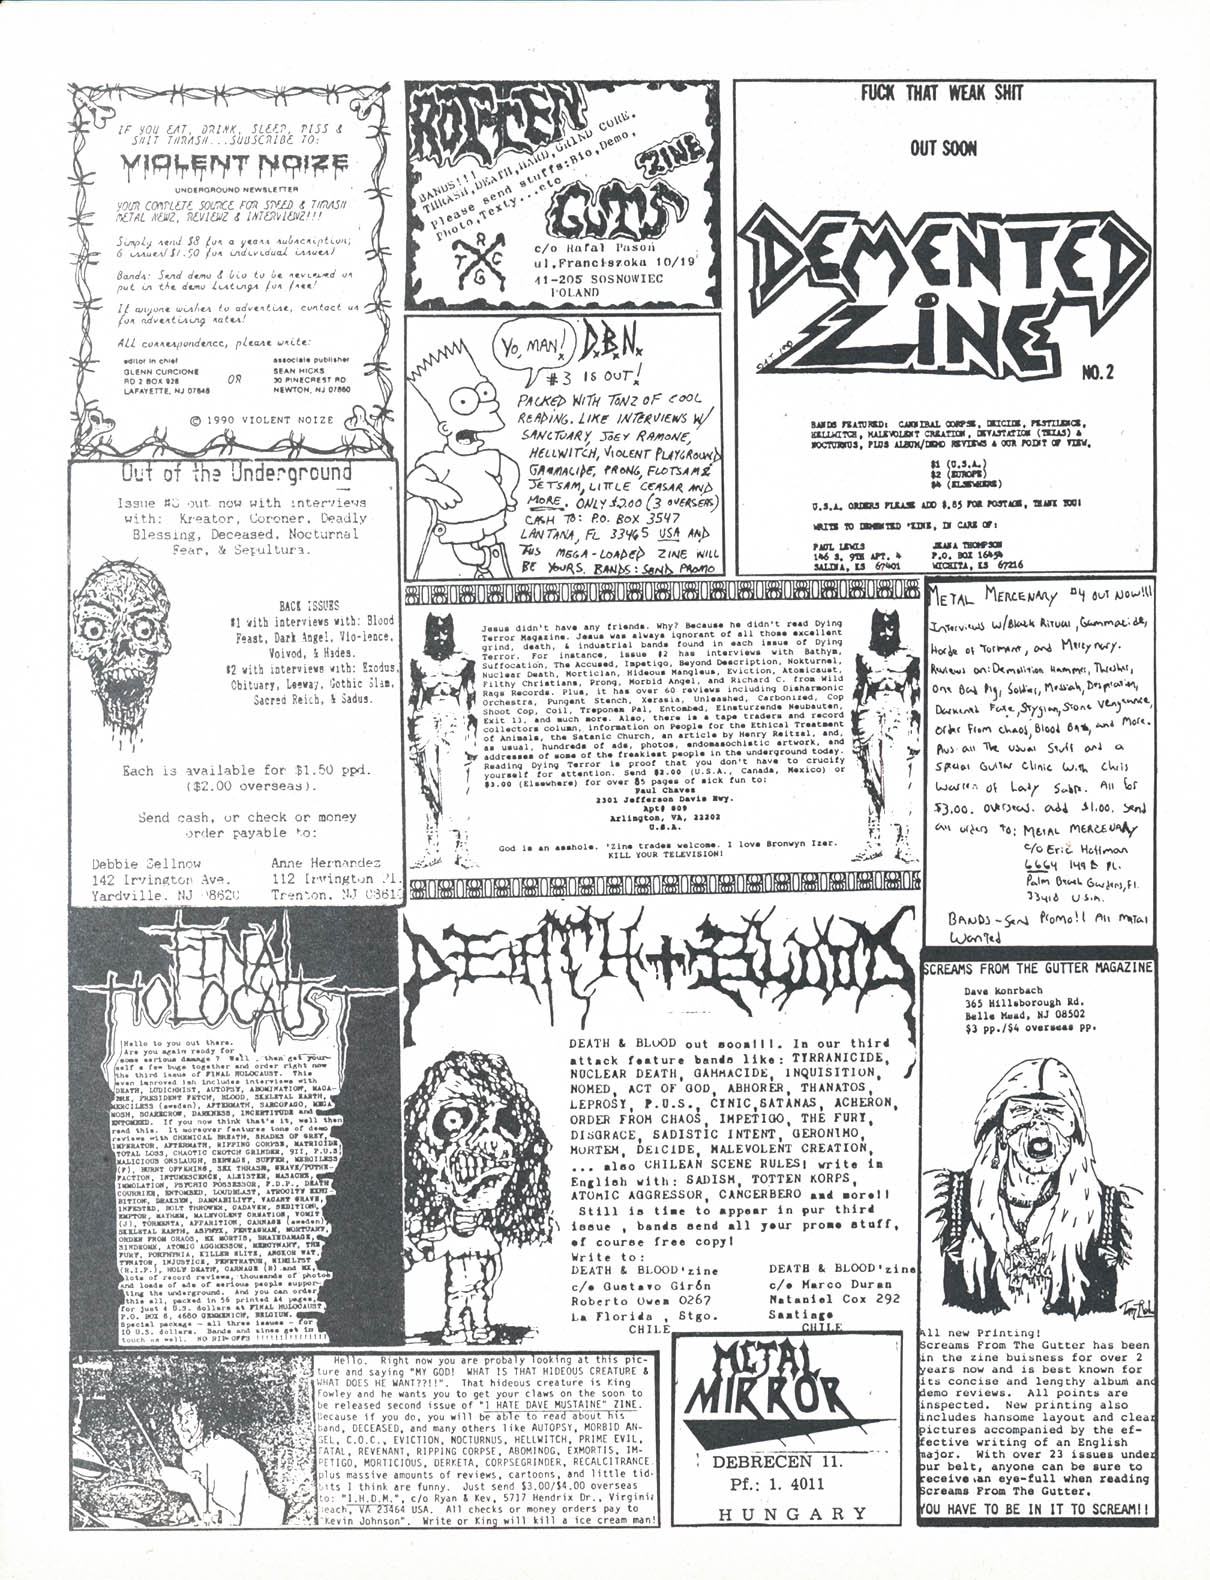 IF YOU EAT, DRINK, SLEEP, PISS &
SHIT THRASH...SUBSCRIBE TO:
VIOLENT NOIZE
UNDERGROUND NEWSLETTER
YOUR COMPLETE SOURCE FOR SPEED & THRASH
METAL NEWZ, REVIEWZ & INTERVIEWZ!!!
Simply send $8 for a years subscription;
6 issues/$1.50 for individual issues!
Bands: Send demo & bio to be reviewed or
put in the demo listings for free!
If anyone wishes to advertise, contact us
for advertising rates!
All correspondence, please write:
editor in chief
GLENN CURCIONE
RD 2 BOX 928
LAFAYETTE, NJ 07848
OR
associate publisher
SEAN HICKS
30 PINECREST RD
NEWTON, NJ 07860
© 1990 VIOLENT NOIZE
ROTTEN
GUTS
ZINE
BANDS!!!
THRASH,DEATH,HARD,GRIND CORE.
please send stuffs:Bio,Demo,
Photo,Texty...etc
R
T C
G
c/o Rafal Pason
ul.Franciszoka 10/19
41-205 SOSNOWIEC
POLAND
FUCK THAT WEAK SHIT
OUT SOON
DEMENTED
ZINE
NO.2
BANDS FEATURED: CANNIBAL CORPSE, DEICIDE, PESTILENCE,
HELLWITCH, MALEVOLENT CREATION, DEVASTATION (TEXAS) &
NOCTURNUS, PLUS ALBUM/DEMO REVIEWS & OUR POINT OF VIEW.
$1 (U.S.A.)
$2 (EUROPE)
$4 (ELSEWHERE)
U.S.A. ORDERS PLEASE ADD $.85 FOR POSTAGE, THANK YOU!
WRITE TO DEMENTED 'ZINE, IN CARE OF:
PAUL LEWIS
146 S. 9TH APT. 4
SALINA, KS 67401
JEANA THOMPSON
P.O. BOX 16454
WICHITA, KS 67216
YO, MAN!
D.B.N.
#3 IS OUT!
PACKED WITH TONZ OF COOL
READING. LIKE INTERVIEWS W/
SANCTUARY, JOEY RAMONE,
HELLWITCH, VIOLENT PLAYGROUND
GAMMACIDE, PRONG, FLOTSAM &
JETSAM, LITTLE CEASAR AND
MORE. ONLY $2.00 (3 OVERSEAS)
CASH TO: P.O. BOX 3547
LANTANA, FL 33465 USA AND
THIS MEGA-LOADED ZINE WILL
BE YOURS. BANDS: SEND PROMO
Out of the Underground
Issue #3 out now with interviews
with: Kreator, Coroner, Deadly
Blessing, Deceased, Nocturnal
Fear, & Sepultura.
BACK ISSUES
#1 with interviews with: Blood
Feast, Dark Angel, Vio-lence,
Voivod, & Hades.
#2 with interviews with: Exodus,
Obituary, Leeway, Gothic Slam,
Sacred Reich, & Sadus.
Each is available for $1.50 ppd.
($2.00 overseas).
Send cash, or check or money
order payable to:
Debbie Sellnow
142 Irvington Ave.
Yardville, NJ 08620
Anne Hernandez
112 Irvington Pl.
Trenton, NJ 08610
Jesus didn't have any friends. Why? Because he didn't read Dying
Terror Magazine. Jesus was always ignorant of all those excellent
grind, death, & industrial bands found in each issue of Dying
Terror. For instance, issue #2 has interviews with Bathym,
Suffocation, The Accused, Impetigo, Beyond Description, Nokturnel,
Nuclear Death, Mortician, Hideous Mangleus, Eviction, Atomicaust,
Filthy Christians, Prong, Morbid Angel, and Richard C. from Wild
Rags Records. Plus, it has over 60 reviews including Disharmonic
Orchestra, Pungent Stench, Xerasia, Unleashed, Carbonized, Cop
Shoot Cop, Coil, Treponem Pal, Entombed, Einsturzende Neubauten,
Exit 13, and much more. Also, there is a tape traders and record
collectors column, information on People for the Ethical Treatment
of Animals, the Satanic Church, an article by Henry Reitzal, and,
as usual, hundreds of ads, photos, endomasochistic artwork, and
addresses of some of the freakiest people in the underground today.
Reading Dying Terror is proof that you don't have to crucify
yourself for attention. Send $2.00 (U.S.A., Canada, Mexico) or
$3.00 (Elsewhere) for over 85 pages of sick fun to:
Paul Chavez
2301 Jefferson Davis Hwy.
Apt# 809
Arlington, VA, 22202
U.S.A.
God is an asshole. 'Zine trades welcome. I love Bronwyn Izer.
KILL YOUR TELEVISION!
METAL MERCENARY #4 OUT NOW!!!
Interviews w/Black Ritual, Gammacide,
Horde of Torment, and Mercynary.
Reviews on: Demolition Hammer, Thrasher,
One Bad Pig, Soldier, Messiah, Desperation,
Darkened Fate, Stygian, Stone Vengeance,
Order From Chaos, Blood Bath, and More.
Plus all The usual Stuff and a
Special Guitar Clinic with Chris
Warren of Lady Sabre. All for
$3.00. overseas. add $1.00. Send
all orders to: METAL MERCENARY
c/o Eric Hoffman
6664 149th Pl.
Palm Beach Gardens, Fl.
33418 U.S.A.
BANDS - Send Promo!! All metal
Wanted
FINAL
HOLOCAUST
Hello to you out there.
Are you again ready for
some serious damage ? Well , then get your-
self a few bugs together and order right now
the third issue of FINAL HOLOCAUST. This
even improved ish includes interviews with
DEATH, LUDICHRIST, AUTOPSY, ABOMINATION, MACA-
BRE, PRESIDENT FETCH, BLOOD, SKELETAL EARTH,
MERCILESS (sweden), AFTERMATH, SARCOFAGO, MEGA
MOSH, SCARECROW, DARKNESS, INCERTITUDE and
ENTOMBED. If you now think that's it, well then
read this. It moreover features tons of demo
reviews with CHEMICAL BREATH, SHADES OF GREY,
IMPERATOR, AFTERMATH, RIPPING CORPSE, MATRICIDE
TOTAL LOSS, CHAOTIC CROTCH GRINDER, 9II, P.U.S
MALICIOUS ONSLAUGH, SEWAGE, SUFFER, MERCILESS
(P), BURNT OFFERING, SKI THRASH, GRAVE/PUTRE-
FACTION, INTUMESCENCE, ALEISTER, MASACRE,
IMMOLATION, PSYCHIC POSSESSOR, F.D.P., DEATH
COURRIER, ENTOMBED, LOUDBLAST, ATROCITY EXHI-
BITION, DEAKSEN, DAMNABILITY, VACANT GRAVE,
INFESTED, BOLT THROWER, CADAVER, SEDITION,
EMPTOR, MAYHEM, MALEVOLENT CREATION, VOMIT
(J), TORMENTA, APPARITION, CARNAGE (sweden),
SKELETAL EARTH, ASPHYX, PENTAGRAM, MORTUARY,
ORDER FROM CHAOS, EX MORTIS, BRAINDAMAGE,
SINDROME, ATOMIC AGGRESSOR, MERCYNARY, THE
FURY, PORPHYRIA, KILLER ELITE, ANGKOR WAT,
TYNATOR, INJUSTICE, PENETRATOR, NIHILYST
(R.I.P.), HOLY DEATH, CARNAGE (B) and NX,
lots of record reviews, thousands of photos
and loads of ads of serious people suppor-
ting the underground. And you can order
this all, packed in 56 printed A4 pages,
for just 4 U.S. dollars at FINAL HOLOCAUST,
P.O. BOX 6, 4660 GEMMENICH, BELGIUM.
Special package - all three issues - for
10 U.S. dollars. Bands and zines get in
touch as well. NO RIP-OFFS !!!!!!!!!!!!!!!
DEATH + BLOOD
DEATH & BLOOD out soon!!!. In our third
attack feature bands like: TYRRANICIDE,
NUCLEAR DEATH, GAMMACIDE, INQUISITION,
NOMED, ACT OF GOD, ABHORER, THANATOS,
LEPROSY, P.U.S., CYNIC,SATANAS, ACHERON,
ORDER FROM CHAOS, IMPETIGO, THE FURY,
DISGRACE, SADISTIC INTENT, GERONIMO,
MORTEM, DEICIDE, MALEVOLENT CREATION,
... also CHILEAN SCENE RULES! write in
English with: SADISM, TOTTEN KORPS,
ATOMIC AGGRESSOR, CANCERBERO and more!!
Still is time to appear in pur third
issue , bands send all your promo stuff,
of course free copy!
Write to:
DEATH & BLOOD'zine
c/o Gustavo Girón
Roberto Owen 0267
La Florida , Stgo.
CHILE
DEATH & BLOOD'zine
c/o Marco Duran
Nataniel Cox 292
Santiago
CHILE
SCREAMS FROM THE GUTTER MAGAZINE
Dave Konrbach
365 Hillsborough Rd.
Belle Mead, NJ 08502
$3 pp./$4 overseas pp.
All new Printing!
Screams From The Gutter has been
in the zine buisness for over 2
years now and is best known for
its concise and lengthy album and
demo reviews. All points are
inspected. New printing also
includes hansome layout and clear
pictures accompanied by the ef-
fective writing of an English
major. With over 23 issues under
our belt, anyone can be sure to
receive an eye-full when reading
Screams From The Gutter.
YOU HAVE TO BE IN IT TO SCREAM!!
Hello. Right now you are probaly looking at this pic-
ture and saying "MY GOD! WHAT IS THAT HIDEOUS CREATURE &
WHAT DOES HE WANT??!!". That hideous creature is King
Fowley and he wants you to get your claws on the soon to
be released second issue of "I HATE DAVE MUSTAINE" ZINE.
Because if you do, you will be able to read about his
band, DECEASED, and many others like AUTOPSY, MORBID AN-
GEL, C.O.C., EVICTION, NOCTURNUS, HELLWITCH, PRIME EVIL,
FATAL, REVENANT, RIPPING CORPSE, ABOMINOG, EXMORTIS, IM-
PETIGO, MORTICIOUS, DERKETA, CORPSEGRINDER, RECALCITRANCE
plus massive amounts of reviews, cartoons, and little tid-
bits I think are funny. Just send $3.00/$4.00 overseas
to: "I.H.D.M.", c/o Ryan & Kev, 5717 Hendrix Dr., Virginia
Beach, VA 23464 USA. All checks or money orders pay to
"Kevin Johnson". Write or King will kill a ice cream man!
METAL
MIRROR
DEBRECEN 11.
Pf.: 1. 4011
HUNGARY